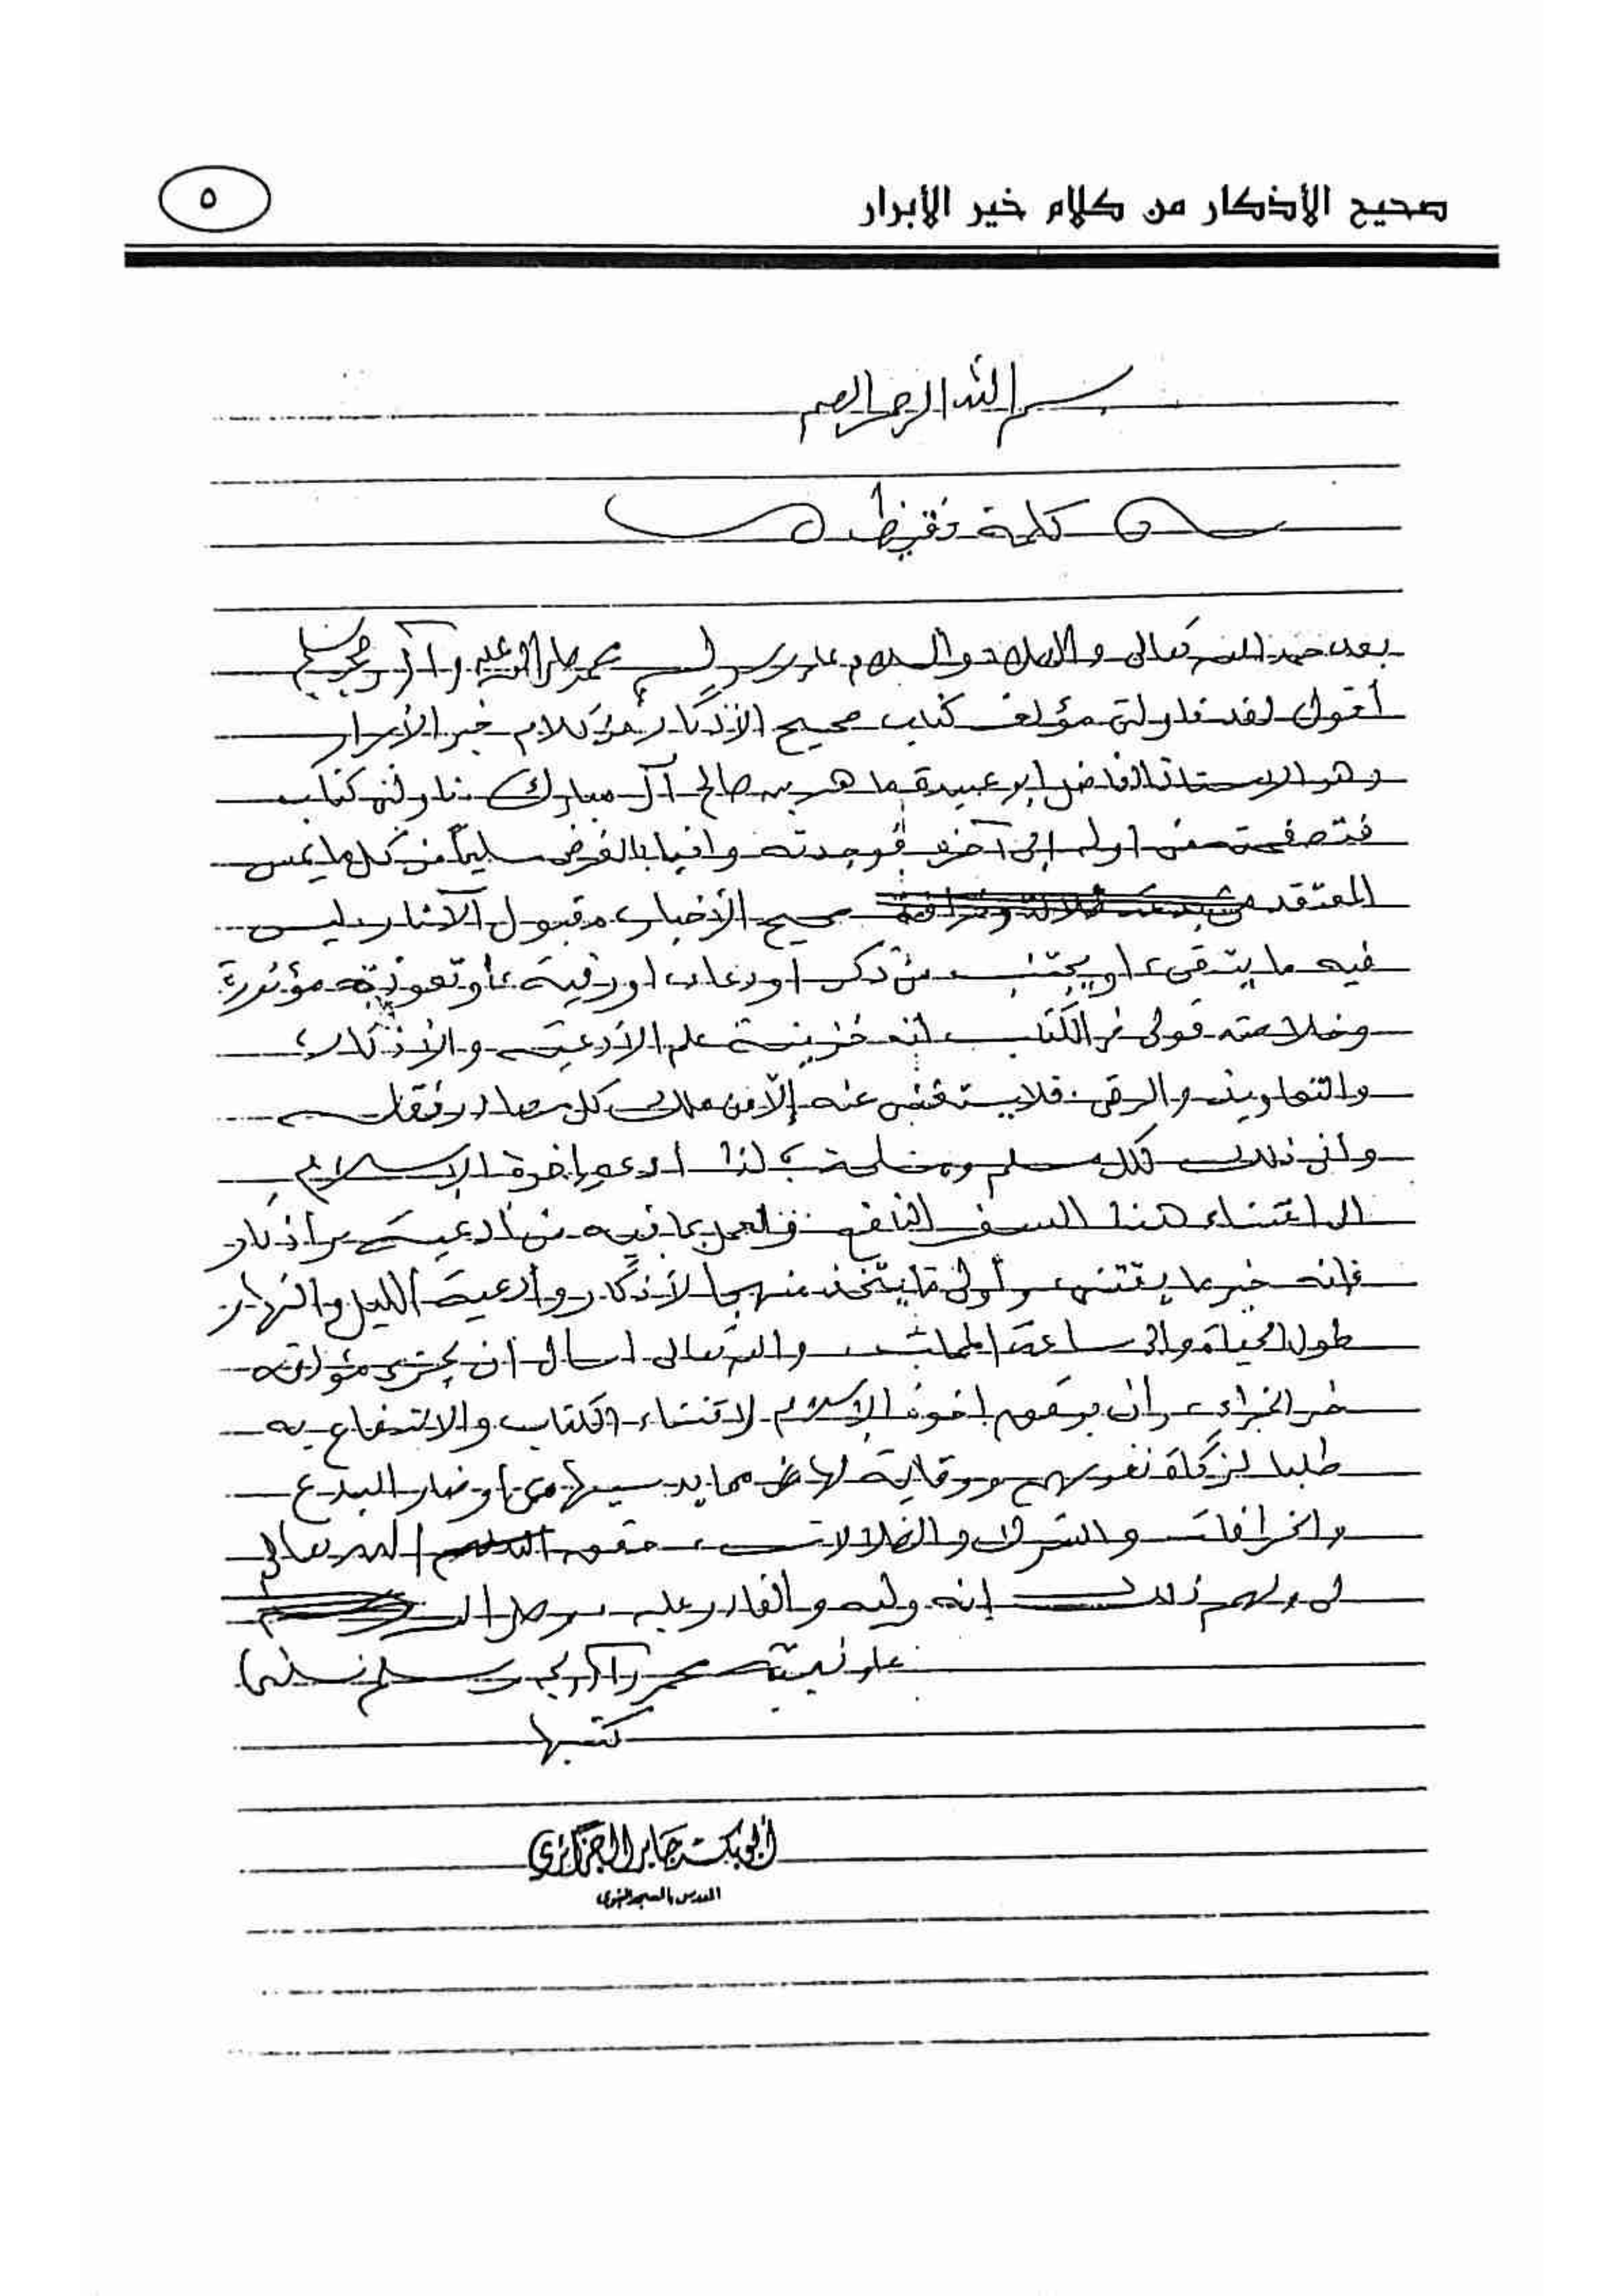 صحيح الأذكار من كلام خير الأبرار
٥
بسم الله الرحمن الرحيم
كلمة تقريظ
بعد حمد الله تعالى والصلاة والسلام على رسوله محمد صلى الله عليه وآله وصحبه وسلم
أقول لقد ناولني مؤلف كتاب صحيح الأذكار من كلام خير الأبرار
وهو الاستاذ الفاضل ابو عبيدة ماهر بن صالح آل مبارك ناولني كتاب
فتصفحته من اوله إلى آخره فوجدته وافيا بالغرض سليماً من كل ما يمس
المعتقد صحيح الأخبار، مقبول الآثار ليس
فيه ما يتقى، او يجتنب من ذكر او دعاء او رقية، أو تعويذة مؤثرة
وخلاصة قولي في الكتاب انه خزينة علم الأدعية والأذكار،
والتعاويذ والرقى. فلا يستغني عنه إلا من ملك كل مصادر
وأنى ذلك لكل مسلم ومسلمة؟ لذا ادعو إخوة الإسلام
الى اقتناء هذا السفر النافع والعمل بما فيه من أدعية وأذكار
فإنه خير ما يقتنى، وأولى ما يتخذ منهجا لأذكار وأدعية الليل والنهار
طول الحياة والى ساعة الممات والله تعالى اسأل أن يجزي مؤلفه
خير الجزاء، وأن يوفق إخوة الإسلام لاقتناء الكتاب والانتفاع به
طلبا لزكاة نفوسهم ووقاية لها مما يدسيها من اوضار البدع
والخرافات والشرك والضلالات، حقق الله تعالى
لي ولهم ذلك إنه وليه والقادر عليه وصلى الله
على نبيه محمد وآله وصحبه وسلم تسليما
كتبها
أبو بكر جابر الجزائري
المدرس بالمسجد النبوي